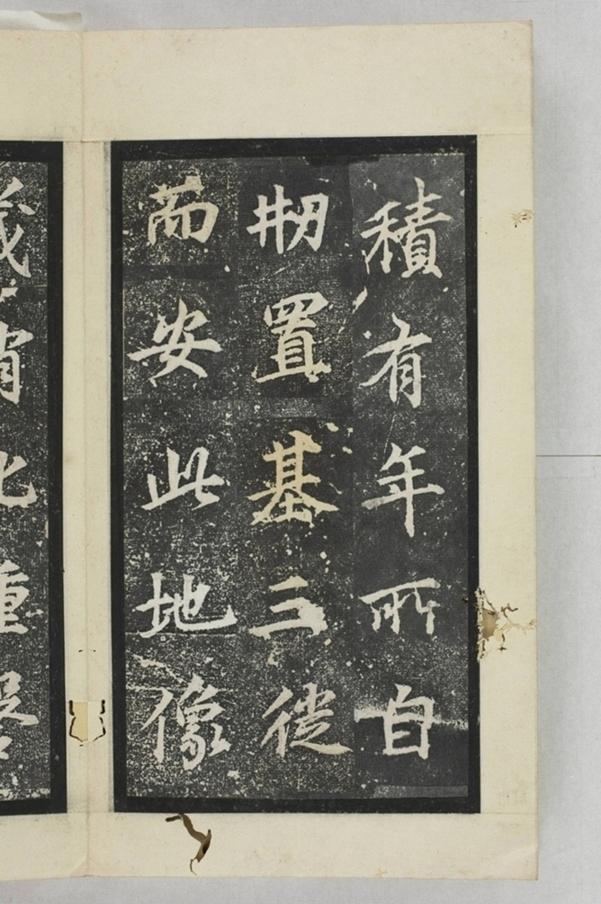 積有年所自
刱置基三徙
而安此地像